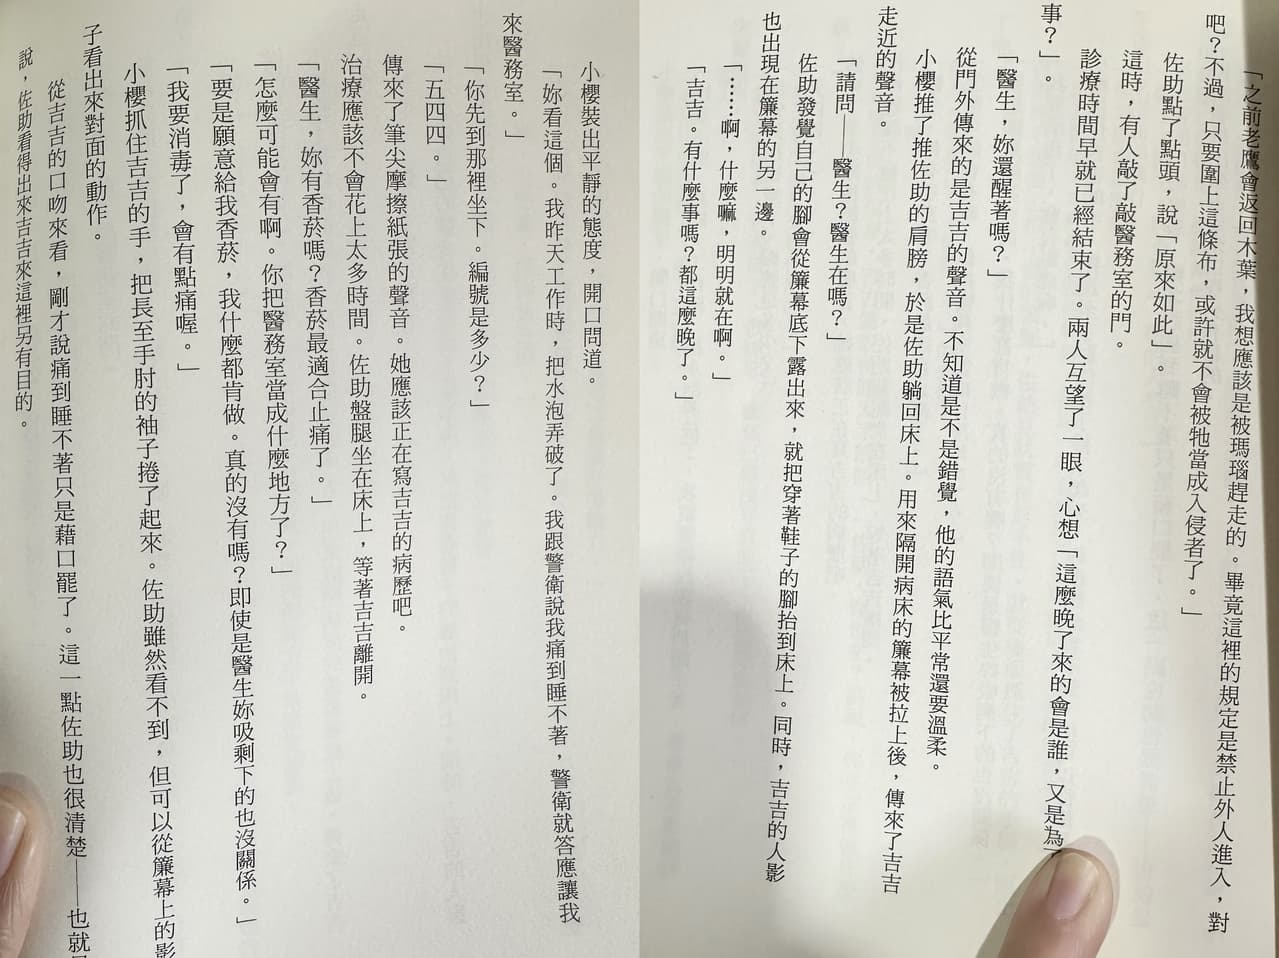 「之前老鷹會返回木葉，我想應該是被瑪瑙趕走的。畢竟這裡的規定是禁止外人進入，對
吧？不過，只要圍上這條布，或許就不會被牠當成入侵者了。」
佐助點了點頭，說「原來如此」。
這時，有人敲了敲醫務室的門。
診療時間早就已經結束了。兩人互望了一眼，心想「這麼晚了來的會是誰，又是為
事？」。
「醫生，妳還醒著嗎？」
從門外傳來的是吉吉的聲音。不知道是不是錯覺，他的語氣比平常還要溫柔。
小櫻推了推佐助的肩膀，於是佐助躺回床上。用來隔開病床的簾幕被拉上後，傳來了吉吉
走近的聲音。
「請問——醫生？醫生在嗎？」
佐助發覺自己的腳會從簾幕底下露出來，就把穿著鞋子的腳抬到床上。同時，吉吉的人影
也出現在簾幕的另一邊。
「……啊，什麼嘛，明明就在啊。」
「吉吉。有什麼事嗎？都這麼晚了。」
小櫻裝出平靜的態度，開口問道。
「妳看這個。我昨天工作時，把水泡弄破了。我跟警衛說我痛到睡不著，警衛就答應讓我
來醫務室。」
「你先到那裡坐下。編號是多少？」
「五四四。」
傳來了筆尖摩擦紙張的聲音。她應該正在寫吉吉的病歷吧。
治療應該不會花上太多時間。佐助盤腿坐在床上，等著吉吉離開。
「醫生，妳有香菸嗎？香菸最適合止痛了。」
「怎麼可能會有啊。你把醫務室當成什麼地方了？」
「要是願意給我香菸，我什麼都肯做。真的沒有嗎？即使是醫生妳吸剩下的也沒關係。」
「我要消毒了，會有點痛喔。」
小櫻抓住吉吉的手，把長至手肘的袖子捲了起來。佐助雖然看不到，但可以從簾幕上的影
子看出來對面的動作。
從吉吉的口吻來看，剛才說痛到睡不著只是藉口罷了。這一點佐助也很清楚——也就
說，佐助看得出來吉吉來這裡另有目的。